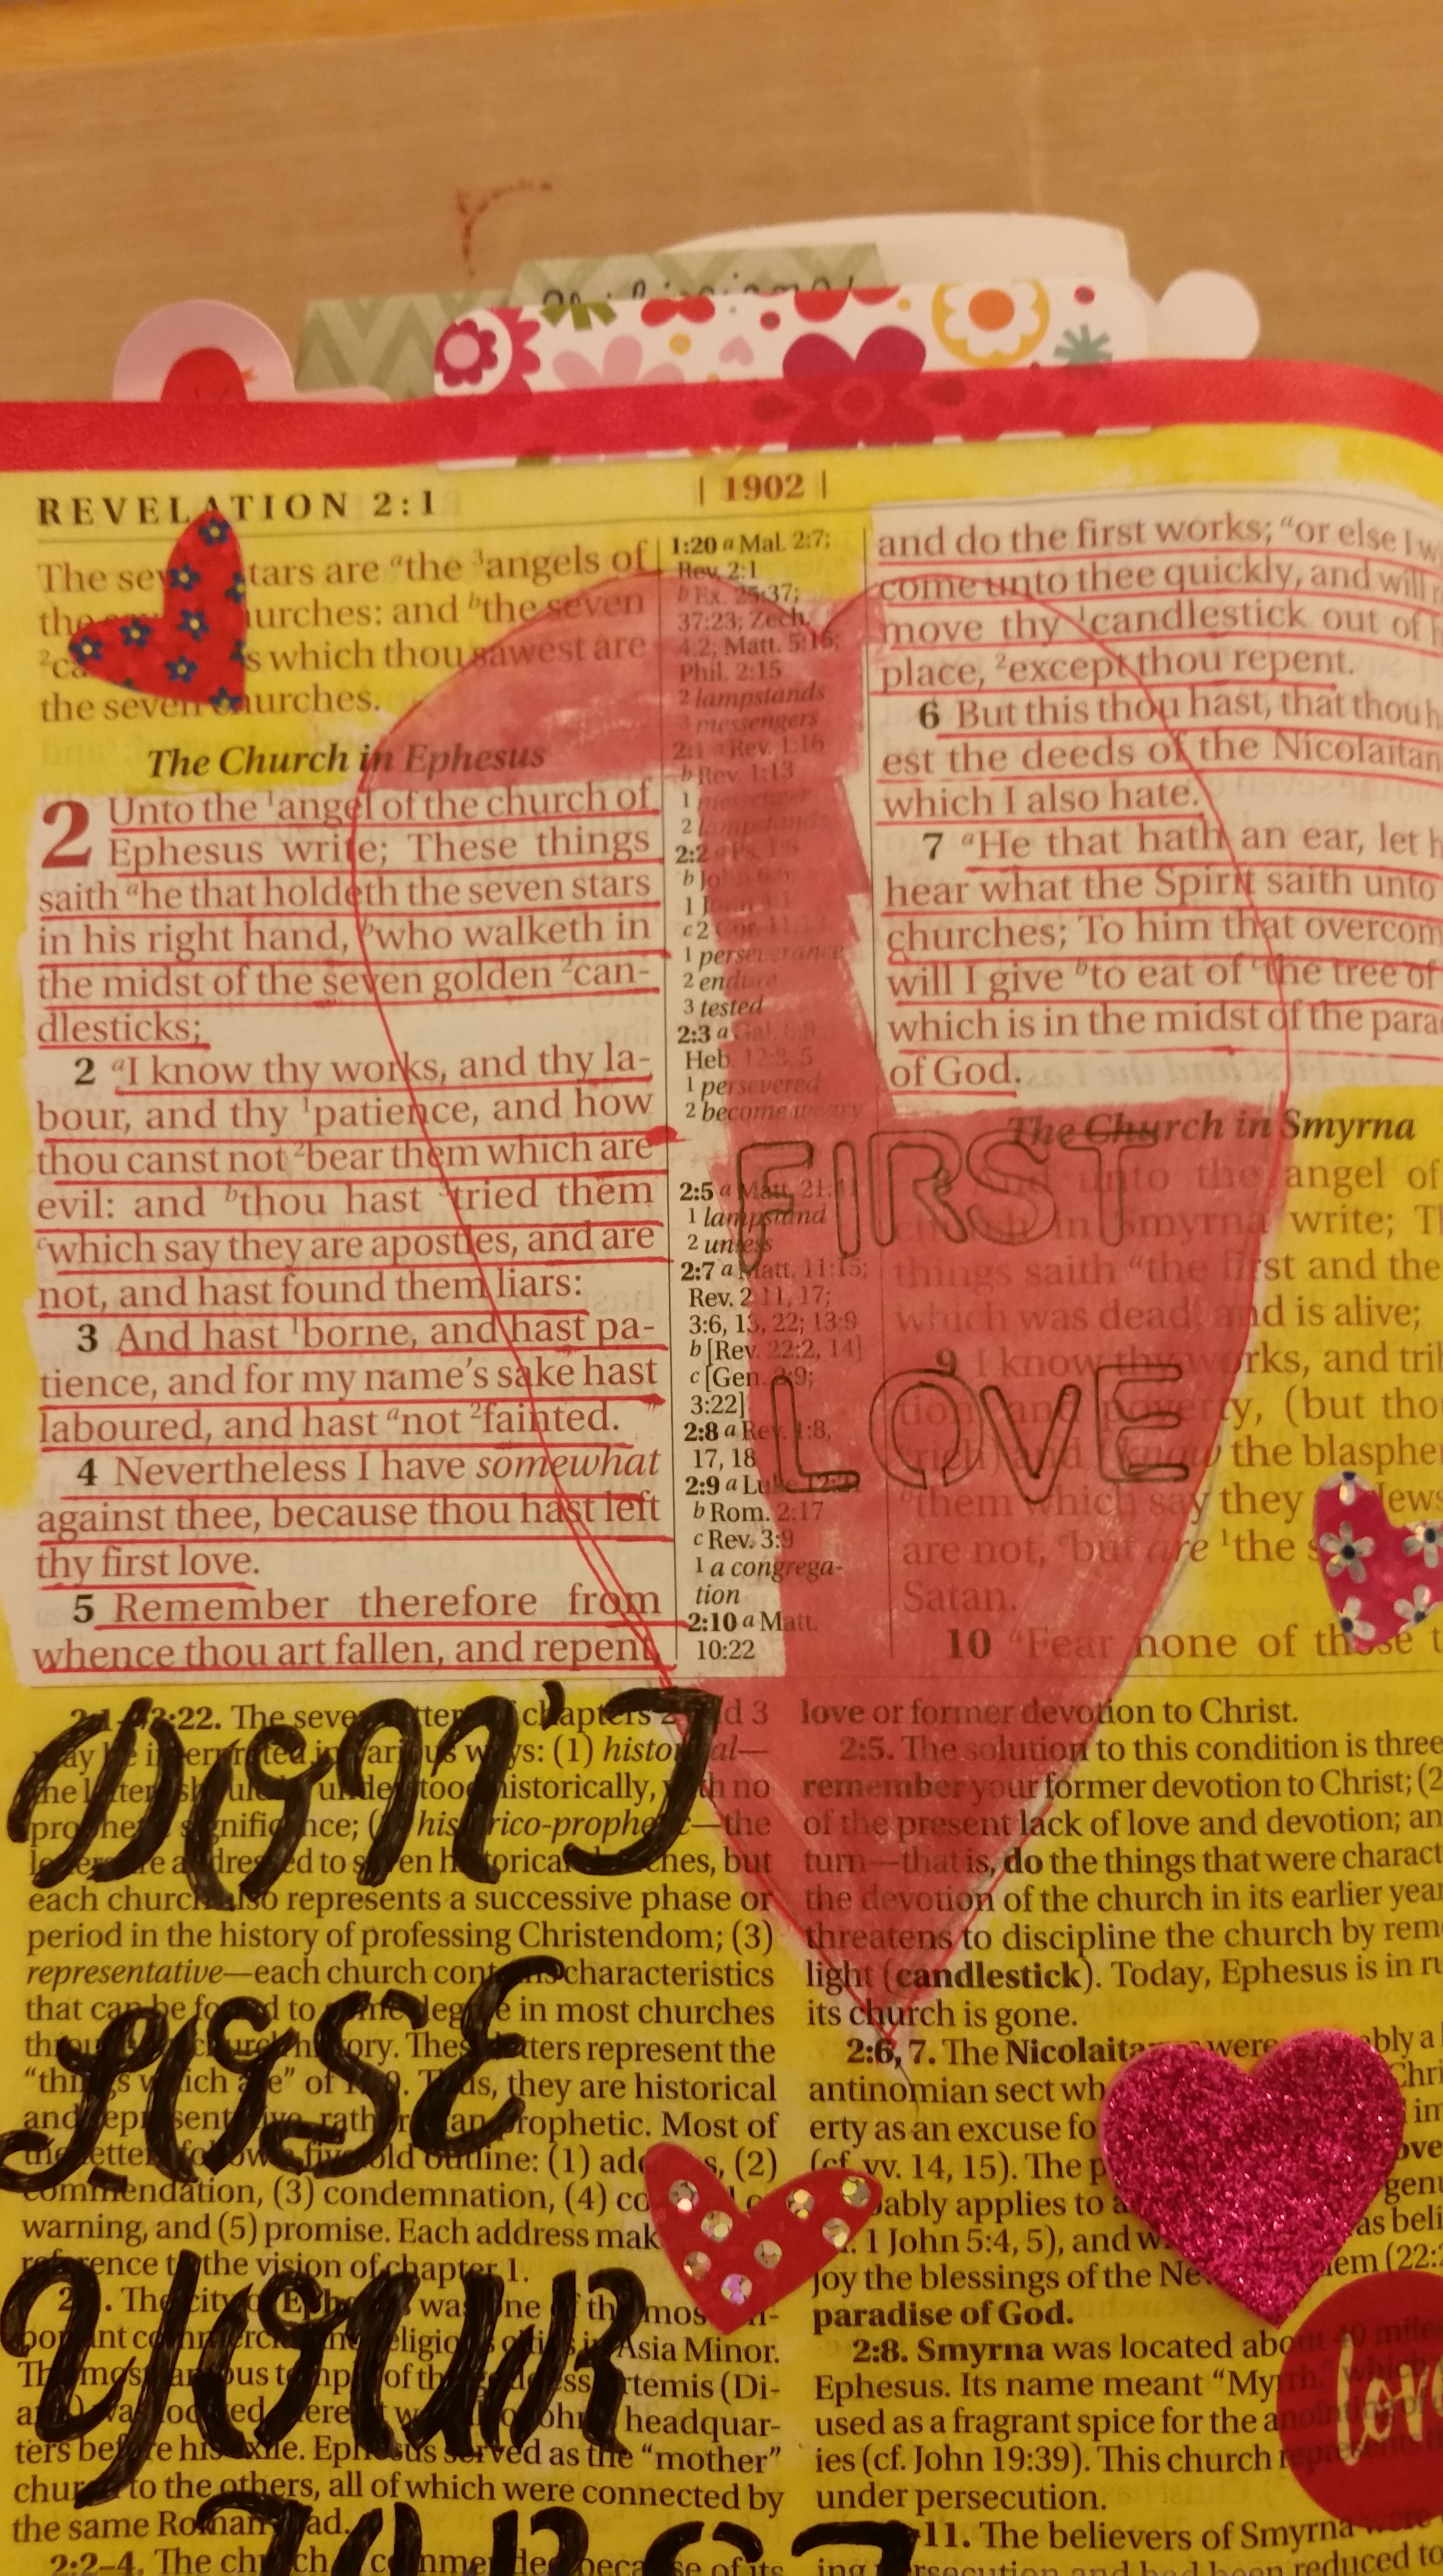 REVELATION 2:1 | 1902 |
The tars are ᵃthe ³angels of
the urches: and ᵇthe seven
s which thou sawest are
the seven churches.
The Church in Ephesus
2 Unto the ¹angel of the church of
Ephesus write; These things
saith ᵃhe that holdeth the seven stars
in his right hand, ᵇwho walketh in
the midst of the seven golden ²can-
dlesticks;
2 ᵃI know thy works, and thy la-
bour, and thy ¹patience, and how
thou canst not ²bear them which are
evil: and ᵇthou hast ³tried them
ᶜwhich say they are apostles, and are
not, and hast found them liars:
3 And hast ¹borne, and hast pa-
tience, and for my name's sake hast
laboured, and hast ᵃnot ²fainted.
4 Nevertheless I have somewhat
against thee, because thou hast left
thy first love.
5 Remember therefore from
whence thou art fallen, and repent,
1:20 a Mal. 2:7;
Rev. 2:1
b Ex. 25:37;
37:23; Zech.
4:2; Matt. 5:15;
Phil. 2:15
2 lampstands
3 messengers
2:1 a Rev. 1:16
b Rev. 1:13
1 messenger
2 lampstands
2:2 a Ps. 1:6
b John 6:6
1 John 4:1
c 2 Cor. 11:13
1 perseverance
2 endure
3 tested
2:3 a Gal. 6:9
Heb. 12:3, 5
1 persevered
2 become weary
2:5 a Matt. 21:41
1 lampstand
2 unless
2:7 a Matt. 11:15;
Rev. 2:11, 17;
3:6, 13, 22; 13:9
b [Rev. 22:2, 14]
c [Gen. 2:9;
3:22]
2:8 a Rev. 1:8,
17, 18
2:9 a Luke 12:21
b Rom. 2:17
c Rev. 3:9
1 a congrega-
tion
2:10 a Matt.
10:22
and do the first works; ᵃor else I w
come unto thee quickly, and will r
move thy ¹candlestick out of
place, ²except thou repent.
6 But this thou hast, that thou h
est the deeds of the Nicolaitan
which I also hate.
7 ᵃHe that hath an ear, let h
hear what the Spirit saith unto
churches; To him that overcom
will I give ᵇto eat of ᶜthe tree of
which is in the midst of the para
of God.
The Church in Smyrna
unto the angel of
in Smyrna write; T
things saith ᵃthe first and the
which was dead, and is alive;
9 I know thy works, and tri
tion, and poverty, (but tho
rich) and I know the blasphe
them which say they Jews
are not, ᶜbut are ¹the s
Satan.
10 ᵃFear none of those t
FIRST
LOVE
2:1–3:22. The seven letters of chapters 2 and 3
may be interpreted in various ways: (1) historical—
the letters should be understood historically, with no
prophetic significance; (2) historico-prophetic—the
letters are addressed to seven historical churches, but
each church also represents a successive phase or
period in the history of professing Christendom; (3)
representative—each church contains characteristics
that can be found to some degree in most churches
throughout church history. These letters represent the
"things which are" of 1:19. Thus, they are historical
and representative, rather than prophetic. Most of
the letters follow a fivefold outline: (1) address, (2)
commendation, (3) condemnation, (4)
warning, and (5) promise. Each address mak
reference to the vision of chapter 1.
2:1. The city of Ephesus was one of the most im-
portant commercial and religious cities in Asia Minor.
The most famous temple of the goddess Artemis (Di-
ana) was located here. It was also John's headquar-
ters before his exile. Ephesus served as the "mother"
church to the others, all of which were connected by
the same Roman road.
2:2–4. The church commended because of its
love or former devotion to Christ.
2:5. The solution to this condition is three
remember your former devotion to Christ; (2
of the present lack of love and devotion; an
turn—that is, do the things that were charact
the devotion of the church in its earlier year
threatens to discipline the church by rem
light (candlestick). Today, Ephesus is in ru
its church is gone.
2:6, 7. The Nicolaitans were probably a
antinomian sect wh Chri
erty as an excuse fo im
(cf. vv. 14, 15). The p ove
probably applies to a genu
1 John 5:4, 5), and w as beli
joy the blessings of the New Jerusalem (22:
paradise of God.
2:8. Smyrna was located about 40 miles
Ephesus. Its name meant "Myrrh," which
used as a fragrant spice for the anointing of
ies (cf. John 19:39). This church represents
under persecution.
11. The believers of Smyrna were
persecution and had been reduced to
DON'T
LOSE
YOUR
FIRST
love